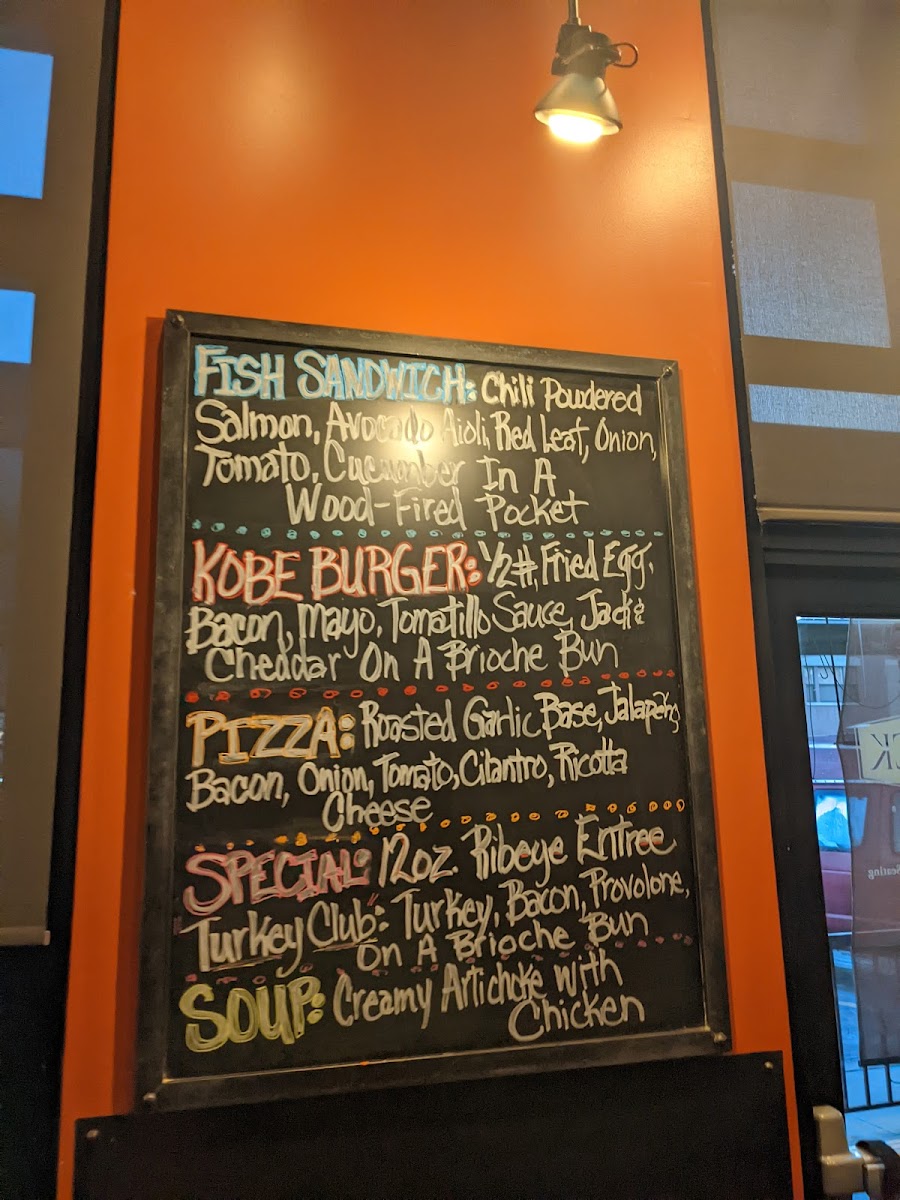 FISH SANDWICH: Chili Powdered
Salmon, Avocado Aioli, Red Leaf, Onion,
Tomato, Cucumber In A
Wood-Fired Pocket
KOBE BURGER: 1/2#, Fried Egg,
Bacon, Mayo, Tomatillo Sauce, Jack &
Cheddar On A Brioche Bun
PIZZA: Roasted Garlic Base, Jalapeño,
Bacon, Onion, Tomato, Cilantro, Ricotta
Cheese
SPECIAL: 12oz. Ribeye Entree
Turkey Club: Turkey, Bacon, Provolone,
On A Brioche Bun
SOUP: Creamy Artichoke with
Chicken
Seating